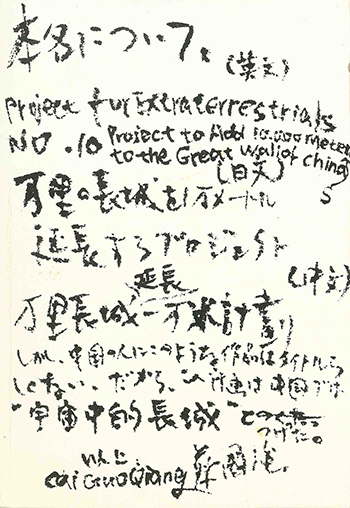 本名について、
(英文)
project for Extraterrestrials
NO.10 Project to Add 10.000 meters
to the Great wall of china
(日文)
万里の長城を1万メートル
延長するプロジェクト
(中文)
万里長城延長一万米計劃
しかし、中国の人にこのような作品はタイトルら
しくない、だから、この計画は中国では
"宇宙中的長城"と
つけた。
以上
cai Guo Qiang 蔡國強